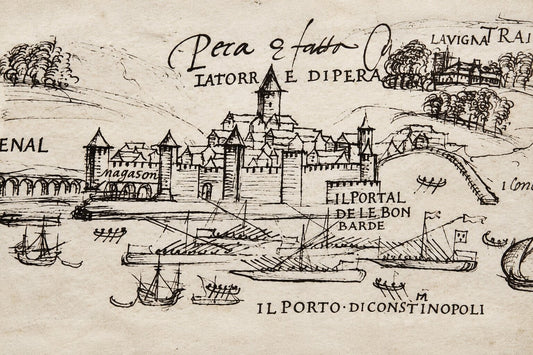 Pera o fatto
LAVIGNA TRAI
IATORR E DIPERA
ENAL
magason
IL PORTAL
DE LE BON
BARDE
I Con
IL PORTO · DI CONSTINOPOLI